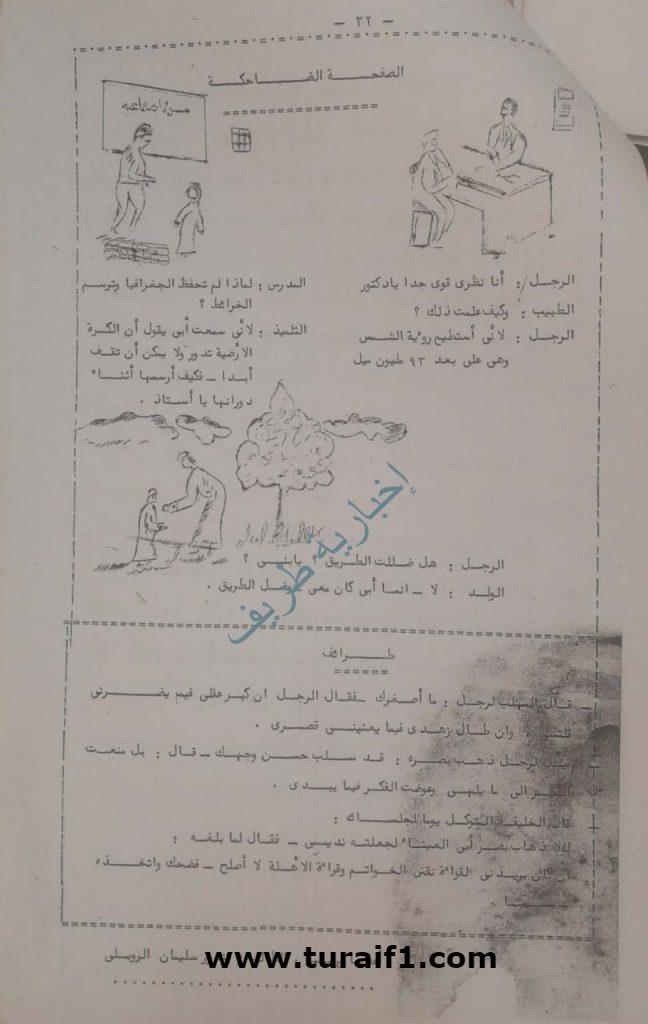 - ٢٢ -
الصفحة الضاحكة
الرجل : أنا نظرى قوى جدا يادكتور
الطبيب : وكيف علمت ذلك ؟
الرجل : لأنى أستطيع رؤية الشمس
وهى على بعد ٩٣ مليون ميل
المدرس : لماذا لم تحفظ الجغرافيا وترسم
الخرائط ؟
التلميذ : لأنى سمعت أبى يقول أن الكرة
الأرضية تدور ولا يمكن أن تقف
أبدا - فكيف أرسمها أثناء
دورانها يا أستاذ .
إخبارية طريف
الرجل : هل ضللت الطريق يابنى ؟
الولد : لا - انما أبى كان معى الطريق .
طرائف
- قال المهلب لرجل : ما أصغرك - فقال الرجل ان كبر عقلى فيم يضرنى
وان طال زهدى فيما يعنينى قصرى .
لرجل ذهب بصره : قد سلب حسن وجهك - قال : بل منعت
الى ما يلهى وعوضت الفكر فيما يجدى .
قال الخليفة المتوكل يوما لجلسائه :
لولا ذهاب بصر أبى العيناء لجعلته نديمى - فقال لما بلغه :
القراءة نقش الخواتم وقراءة الأهلة لا أصلح - فضحك واتخذه
سليمان الرويلى
www.turaif1.com